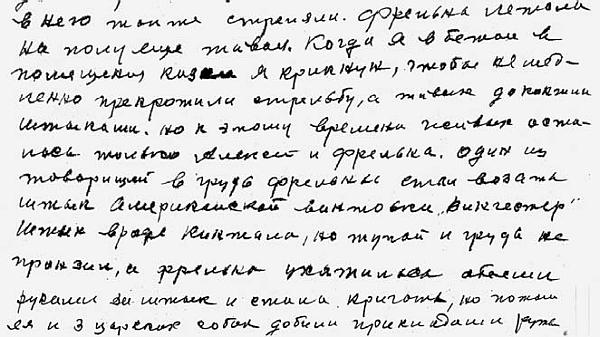 в него тоже стреляли. Фрельна лежала
на полу еще живая. Когда я вбежал в
помещения казни я крикнул, чтобы немед-
ленно прекратили стрельбу, а живых докончили
штыками. но к этому времени в живых оста-
лось только Алексей и Фрельна. один из
товарищей в грудь фрельны стал вонзать
штык Американской винтовки „Винчестер"
Штык вроде кинжала, но тупой и грудь не
пронзил, а фрельна ухватилась обеими
руками за штык и стала кричать, но потом
ея и 3 царских собак добили прикладами ружья